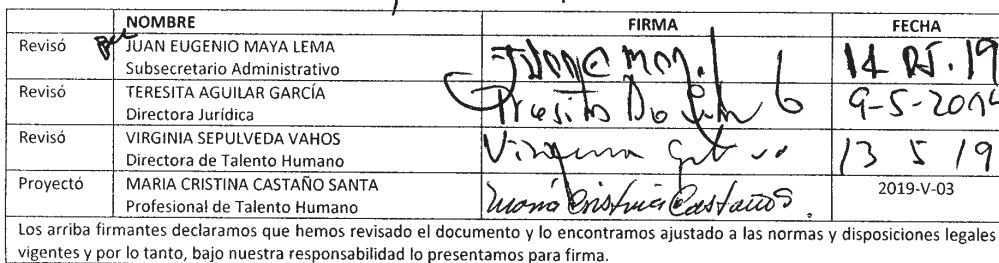 NOMBRE FIRMA FECHA
Revisó JUAN EUGENIO MAYA LEMA
Subsecretario Administrativo
Revisó TERESITA AGUILAR GARCÍA 9-5-2019
Directora Jurídica
Revisó VIRGINIA SEPULVEDA VAHOS Virginia 13 5 19
Directora de Talento Humano
Proyectó MARIA CRISTINA CASTAÑO SANTA María Cristina Castaño S. 2019-V-03
Profesional de Talento Humano
Los arriba firmantes declaramos que hemos revisado el documento y lo encontramos ajustado a las normas y disposiciones legales
vigentes y por lo tanto, bajo nuestra responsabilidad lo presentamos para firma.